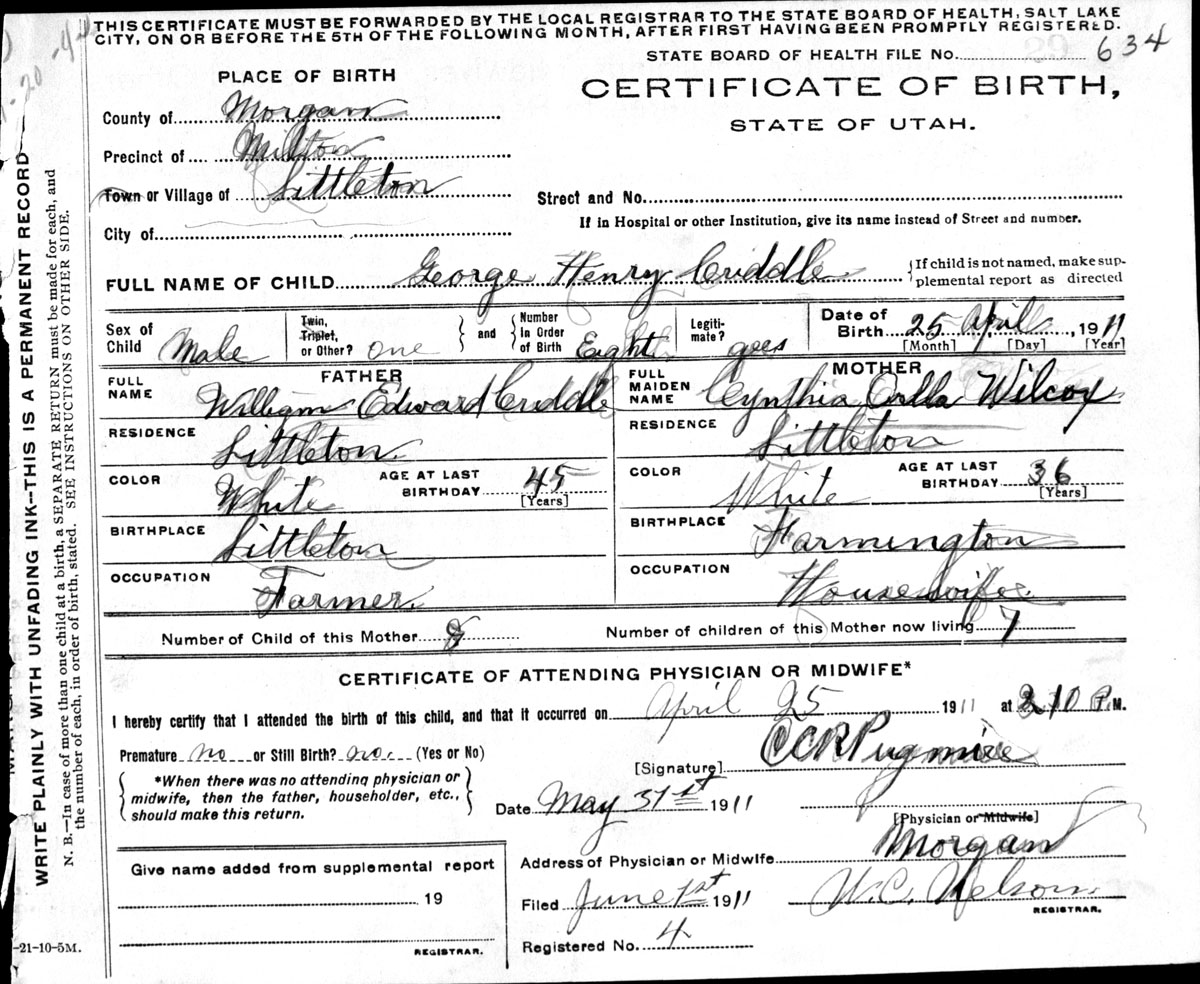 THIS CERTIFICATE MUST BE FORWARDED BY THE LOCAL REGISTRAR TO THE STATE BOARD OF HEALTH, SALT LAKE
CITY, ON OR BEFORE THE 5TH OF THE FOLLOWING MONTH, AFTER FIRST HAVING BEEN PROMPTLY REGISTERED.
STATE BOARD OF HEALTH FILE No. 634
PLACE OF BIRTH
CERTIFICATE OF BIRTH,
STATE OF UTAH.
County of Morgan
Precinct of Milton
Town or Village of Littleton
Street and No.
If in Hospital or other Institution, give its name instead of Street and number.
City of
FULL NAME OF CHILD George Henry Criddle {If child is not named, make sup-
plemental report as directed
Sex of Child Male
Twin, Triplet, or Other? One
and
Number In Order of Birth Eight
Legiti-mate? yes
Date of Birth 25 April, 1911
[Month] [Day] [Year]
FATHER
FULL NAME William Edward Criddle
RESIDENCE Littleton.
COLOR White
AGE AT LAST BIRTHDAY 45
[Years]
BIRTHPLACE Littleton
OCCUPATION Farmer.
MOTHER
FULL MAIDEN NAME Cynthia Orlla Wilcox
RESIDENCE Littleton
COLOR White
AGE AT LAST BIRTHDAY 36
[Years]
BIRTHPLACE Farmington
OCCUPATION Housewife.
Number of Child of this Mother 8
Number of children of this Mother now living 7
CERTIFICATE OF ATTENDING PHYSICIAN OR MIDWIFE*
I hereby certify that I attended the birth of this child, and that it occurred on April 25 1911 at 210 P.M.
Premature no or Still Birth? no. (Yes or No)
[Signature] CCR Pugmire
*When there was no attending physician or
midwife, then the father, householder, etc.,
should make this return.
Date May 31st 1911
[Physician or Midwife]
Address of Physician or Midwife Morgan
Give name added from supplemental report
19
REGISTRAR.
Filed June 1st 1911
W.C. Nelson.
REGISTRAR.
Registered No. 4
WRITE PLAINLY WITH UNFADING INK--THIS IS A PERMANENT RECORD
N. B.—In case of more than one child at a birth, a SEPARATE RETURN must be made for each, and
the number of each, in order of birth, stated. SEE INSTRUCTIONS ON OTHER SIDE.
-21-10-5M.